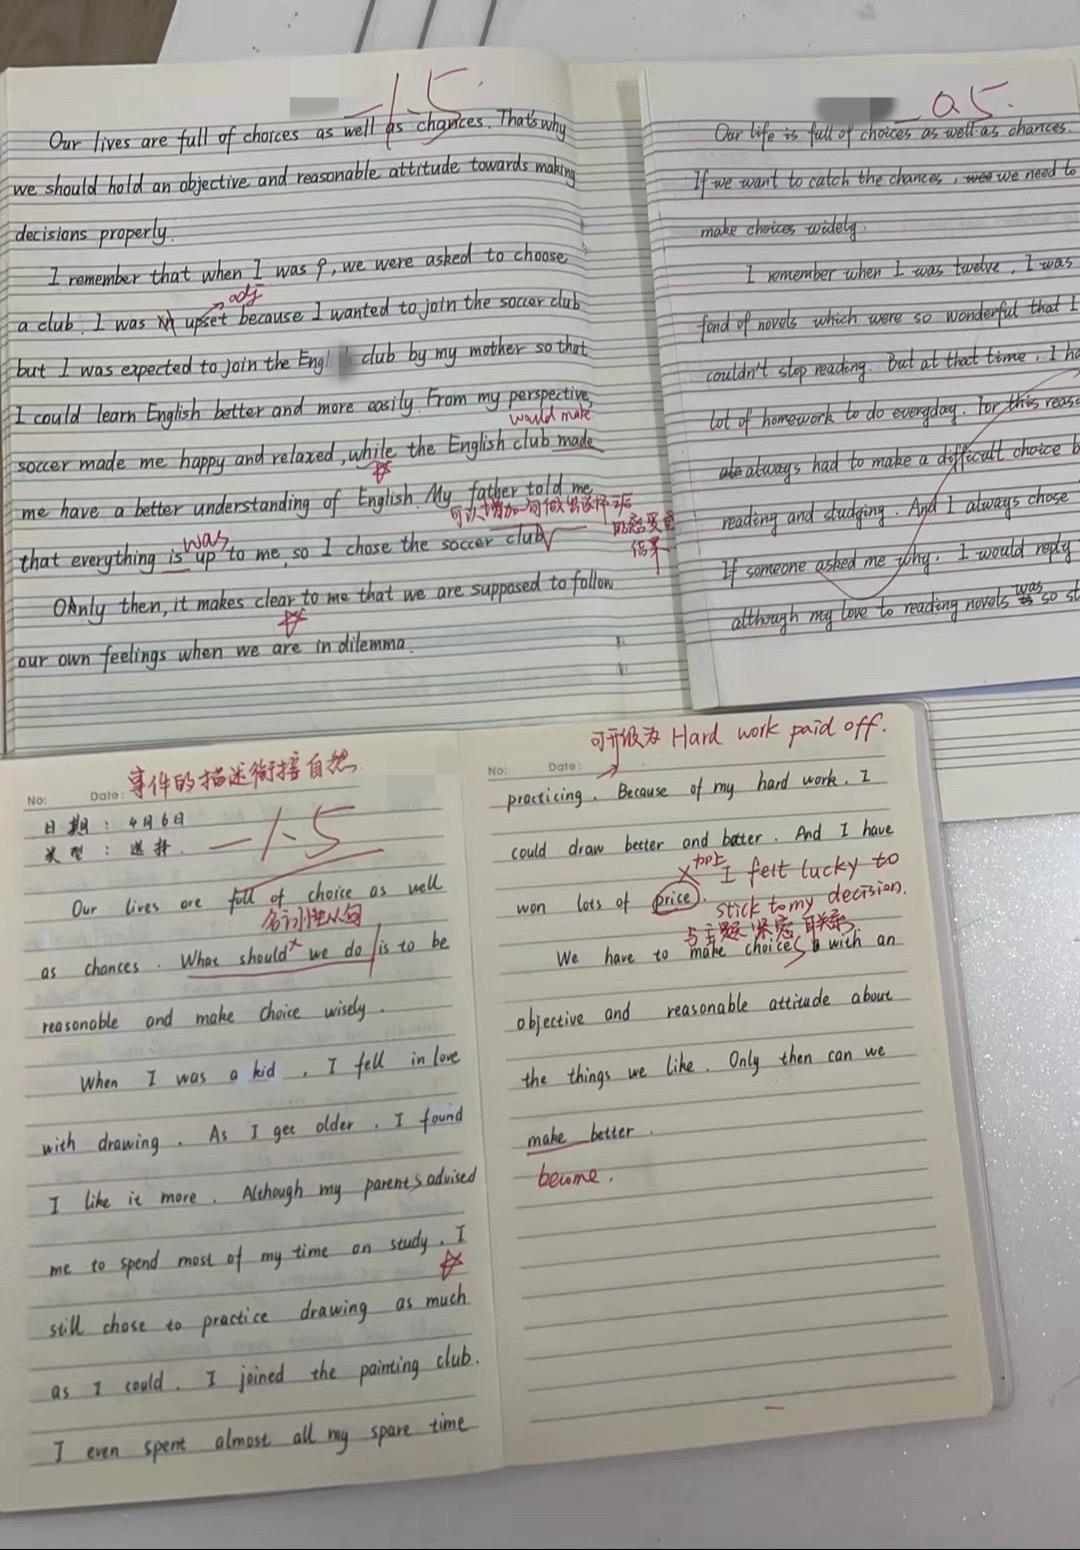 -1.5
Our lives are full of choices as well as chances. That's why
we should hold an objective and reasonable attitude towards making
decisions properly.
I remember that when I was 9, we were asked to choose
adj
a club. I was upset because I wanted to join the soccer club
but I was expected to join the Engl club by my mother so that
I could learn English better and more easily. From my perspective,
would make
soccer made me happy and relaxed, while the English club made
me have a better understanding of English. My father told me
可以增加一句做出选择后
的感受或
结果
was
that everything is up to me, so I chose the soccer club
Only then, it makes clear to me that we are supposed to follow
our own feelings when we are in dilemma.
-0.5.
Our life is full of choices as well as chances.
If we want to catch the chances, we need to
make choices widely.
I remember when I was twelve, I was
fond of novels which were so wonderful that I
couldn't stop reading. But at that time, I ha
lot of homework to do everyday. For this reaso
always had to make a difficult choice b
reading and studying. And I always chose
If someone asked me why, I would reply
was
although my love to reading novels so st
事件的描述衔接自然
No: Date:
日期: 4月6日
类型: 选择.
-1.5
Our lives are full of choice as well
名词性从句
as chances. What should we do is to be
reasonable and make choice wisely.
When I was a kid, I fell in love
with drawing. As I get older, I found
I like it more. Although my parents advised
me to spend most of my time on study, I
still chose to practice drawing as much
as I could. I joined the painting club.
I even spent almost all my spare time
可升级为 Hard work paid off.
No: Date:
practicing. Because of my hard work, I
could draw better and better. And I have
加上 I felt lucky to
won lots of price.
stick to my decision.
与主题紧密联系
We have to make choices with an
objective and reasonable attitude about
the things we like. Only then can we
make better.
become.